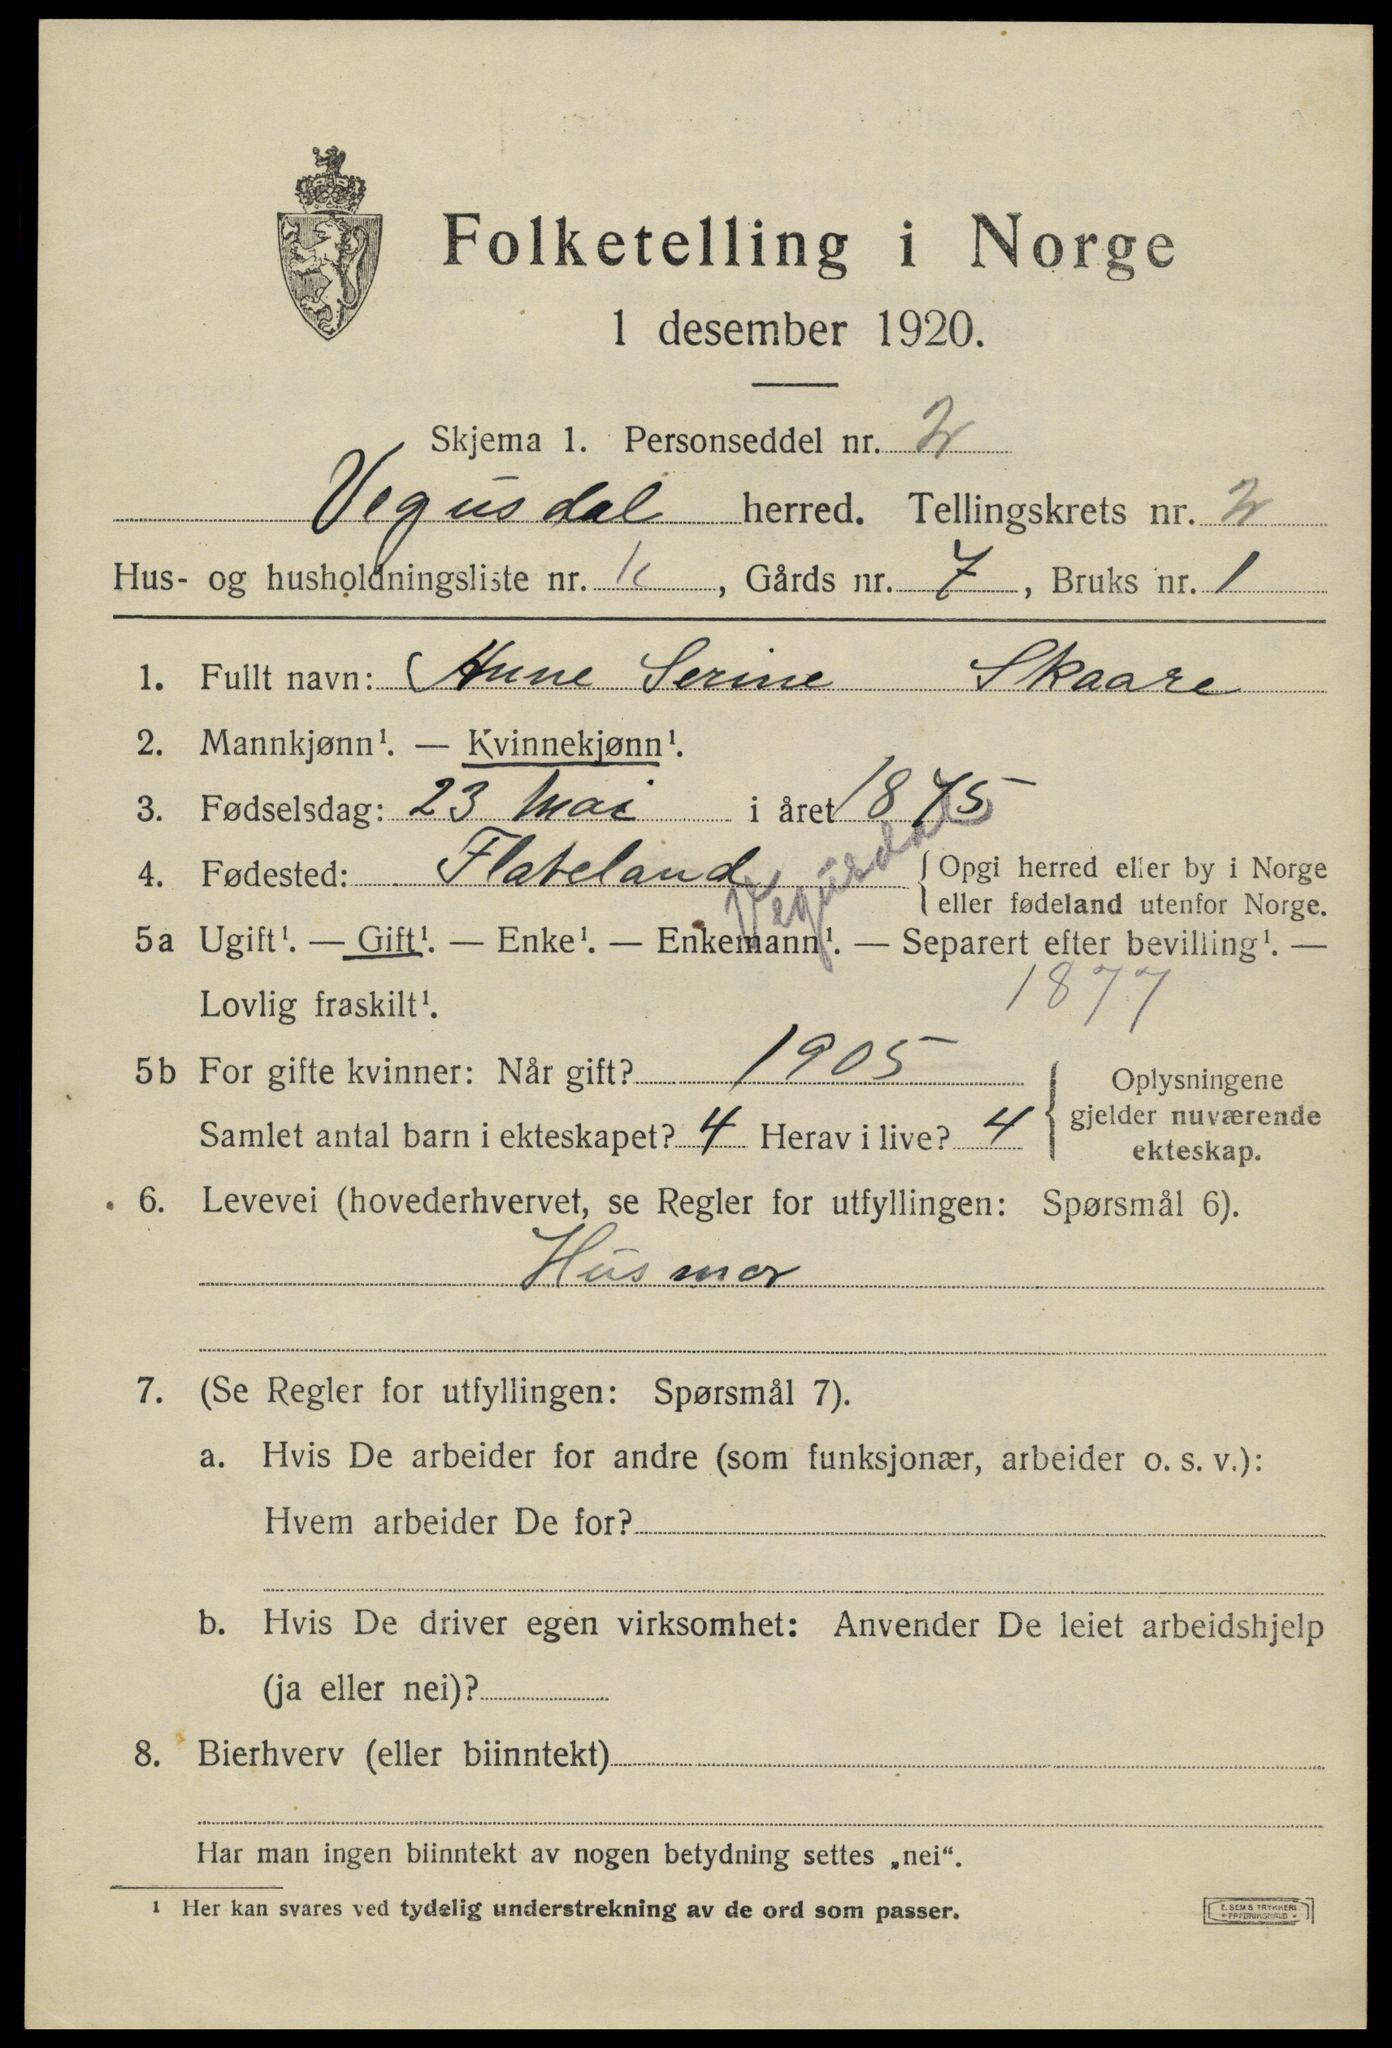 Folketelling i Norge
1 desember 1920.
Skjema 1. Personseddel nr. 2
Vegusdal herred. Tellingskrets nr. 2
Hus- og husholdningsliste nr. , Gårds nr. 7, Bruks nr. 1
1. Fullt navn: Anne Serine Skaare
2. Mannkjønn¹. — Kvinnekjønn¹.
3. Fødselsdag: 23 Mai i året 1875
4. Fødested: Flateland Vegusdal { Opgi herred eller by i Norge
eller fødeland utenfor Norge.
5a Ugift¹. — Gift¹. — Enke¹. — Enkemann¹. — Separert efter bevilling¹. —
Lovlig fraskilt¹. 1877
5b For gifte kvinner: Når gift? 1905
Samlet antal barn i ekteskapet? 4 Herav i live? 4
{ Oplysningene
gjelder nuværende
ekteskap.
6. Levevei (hovederhvervet, se Regler for utfyllingen: Spørsmål 6).
Husmor
7. (Se Regler for utfyllingen: Spørsmål 7).
a. Hvis De arbeider for andre (som funksjonær, arbeider o. s. v.):
Hvem arbeider De for?
b. Hvis De driver egen virksomhet: Anvender De leiet arbeidshjelp
(ja eller nei)?
8. Bierhverv (eller biinntekt)
Har man ingen biinntekt av nogen betydning settes „nei“.
¹ Her kan svares ved tydelig understrekning av de ord som passer.
E. SEMS TRYKKERI
FREDRIKSHALD